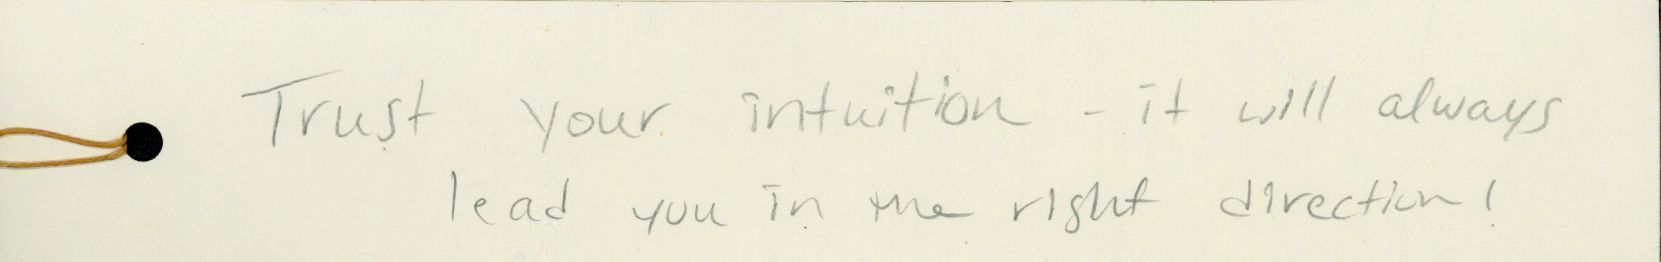 Trust your intuition - it will always
lead you in the right direction!